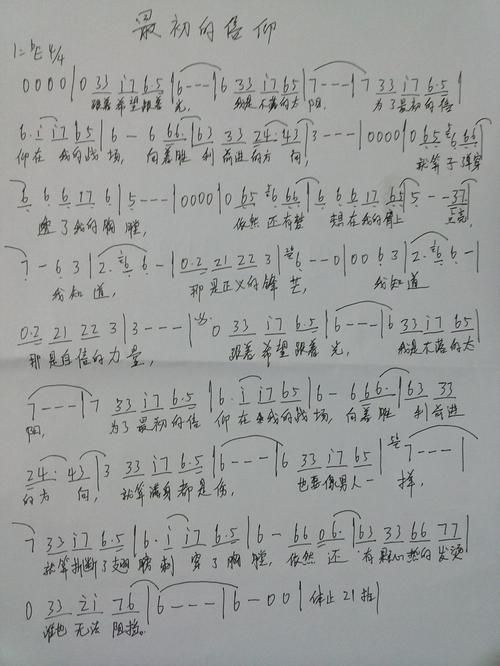 最初的信仰
1=bE 4/4
0 0 0 0 | 0 33 i7 6.5 | 6 - - - | 6 33 i7 65 | 7 - - - | 7 33 i7 6.5 |
跟着希望跟着 光, 我是不落的太 阳, 为了最初的信
6.i i7 65 | 6 - 6 66. | 63 33 24. 43 | 3 - - - | 0 0 0 0 | 0 65 66 |
仰在 我的战 场, 向着胜 利 前进的方 向, 就算子弹穿
6 6 6 17 6 | 5 - - - | 0 0 0 0 | 0 65 66 | 6 6 6 17 65 | 5 - - 37 |
透了我的胸膛, 依然还有梦 想在我的肩上
7 - 6 3 | 2. 6 6 - | 0.2 21 22 3 | 6 - - 0 | 0 0 6 3 | 2. 6 6 - |
我知道, 那是正义的锋 芒, 我知道
0.2 21 22 3 | 3 - - - | 0 33 i7 6.5 | 6 - - - | 6 33 i7 65 |
那是自信的力量, 跟着希望跟着 光, 我是不落的太
7 - - - | 7 33 i7 6.5 | 6. i i7 65 | 6 - 6 66. | 63 33
阳, 为了最初的信 仰在 我的战场, 向着胜 利前进
24. 43 | 3 33 i7 6.5 | 6 - - - | 6 33 i7 65 | 7 - - - |
的方 向, 就算满身都是伤, 也要像男人一 样,
7 33 i7 6.5 | 6. i i7 6.5 | 6 - 66 06. | 63 33 66 77 |
就算折断了翅 膀刺 穿了胸 膛, 依然 还 有颗心热的发烫
0 33 2i 76 | 6 - - - | 6 - 0 0 | 休止21拍 |
谁也 无法 阻挡。